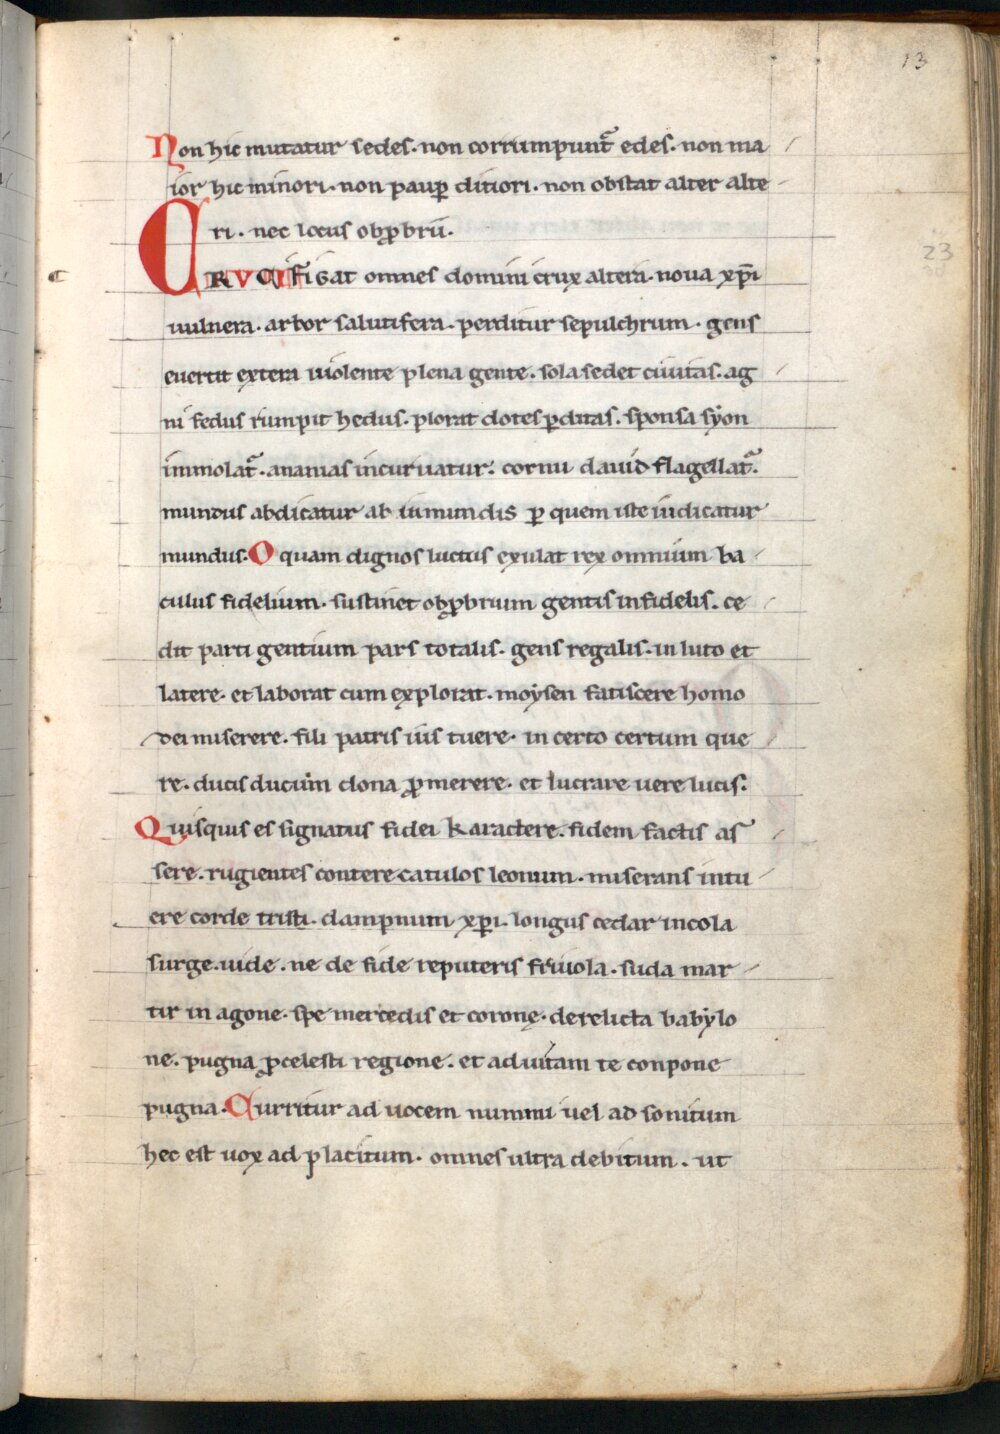 13
Non hic mutatur sedes. non corrumpunt᷑ edes. non ma
ior hic minori. non paup̱ ditiori. non obstat alter alte
ri. nec locus obꝓbrii.
23
CRVCIFIGAT omnes domini crux altera. noua xp̄i
uulnera. arbor salutifera. perditur sepulchrum. gens
euertit extera uiolente plena gente. sola sedet ciuitas. ag
ni fedus rumpit hedus. plorat dotes ꝑditas. sponsa syon
immolat᷑. ananias incuruatur. cornu dauid flagellat᷑.
mundus abdicatur ab inmundis ꝑ quem iste iudicatur
mundus. O quam dignos luctus exulat rex omnium ba
culus fidelium. sustinet obꝓbrium gentis infidelis. ce
dit parti gentium pars totalis. gens regalis. in luto et
latere. et laborat cum explorat. moysen fatiscere homo
dei miserere. fili patris iuis tuere. in certo certum que
re. ducis ducum dona ꝓmerere. et lucrare uere lucis.
Quisquis es signatus fidei karactere. fidem factis as
sere. rugientes contere catulos leonum. miserans intu
ere corde tristi. dampnum xp̄i. longus cedar incola
surge. uide. ne de fide reputeris friuola. suda mar
tir in agone. spe mercedis et coronę. derelicta babylo
ne. pugna ꝓ celesti regione. et ad uitam te conpone
pugna. Curritur ad uocem nummi uel ad sonitum
hec est uox ad placitum. omnes ultra debitum. ut